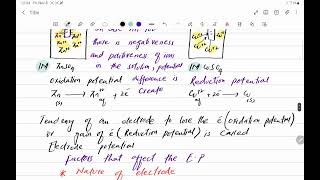 there is negativeness
and positiveness of ions
1M ZnSO4 in the solution, potential 1M CuSO4
difference is
oxidation potential create Reduction potential
Zn(s) → Zn²⁺aq + 2e Cu²⁺aq + 2e → Cu(s)
Tendency of an electrode to lose the e (oxidation potential)
or gain of e (Reduction potential) is called
Electrode potential
Factors that affect the E.P
* Nature of electrode